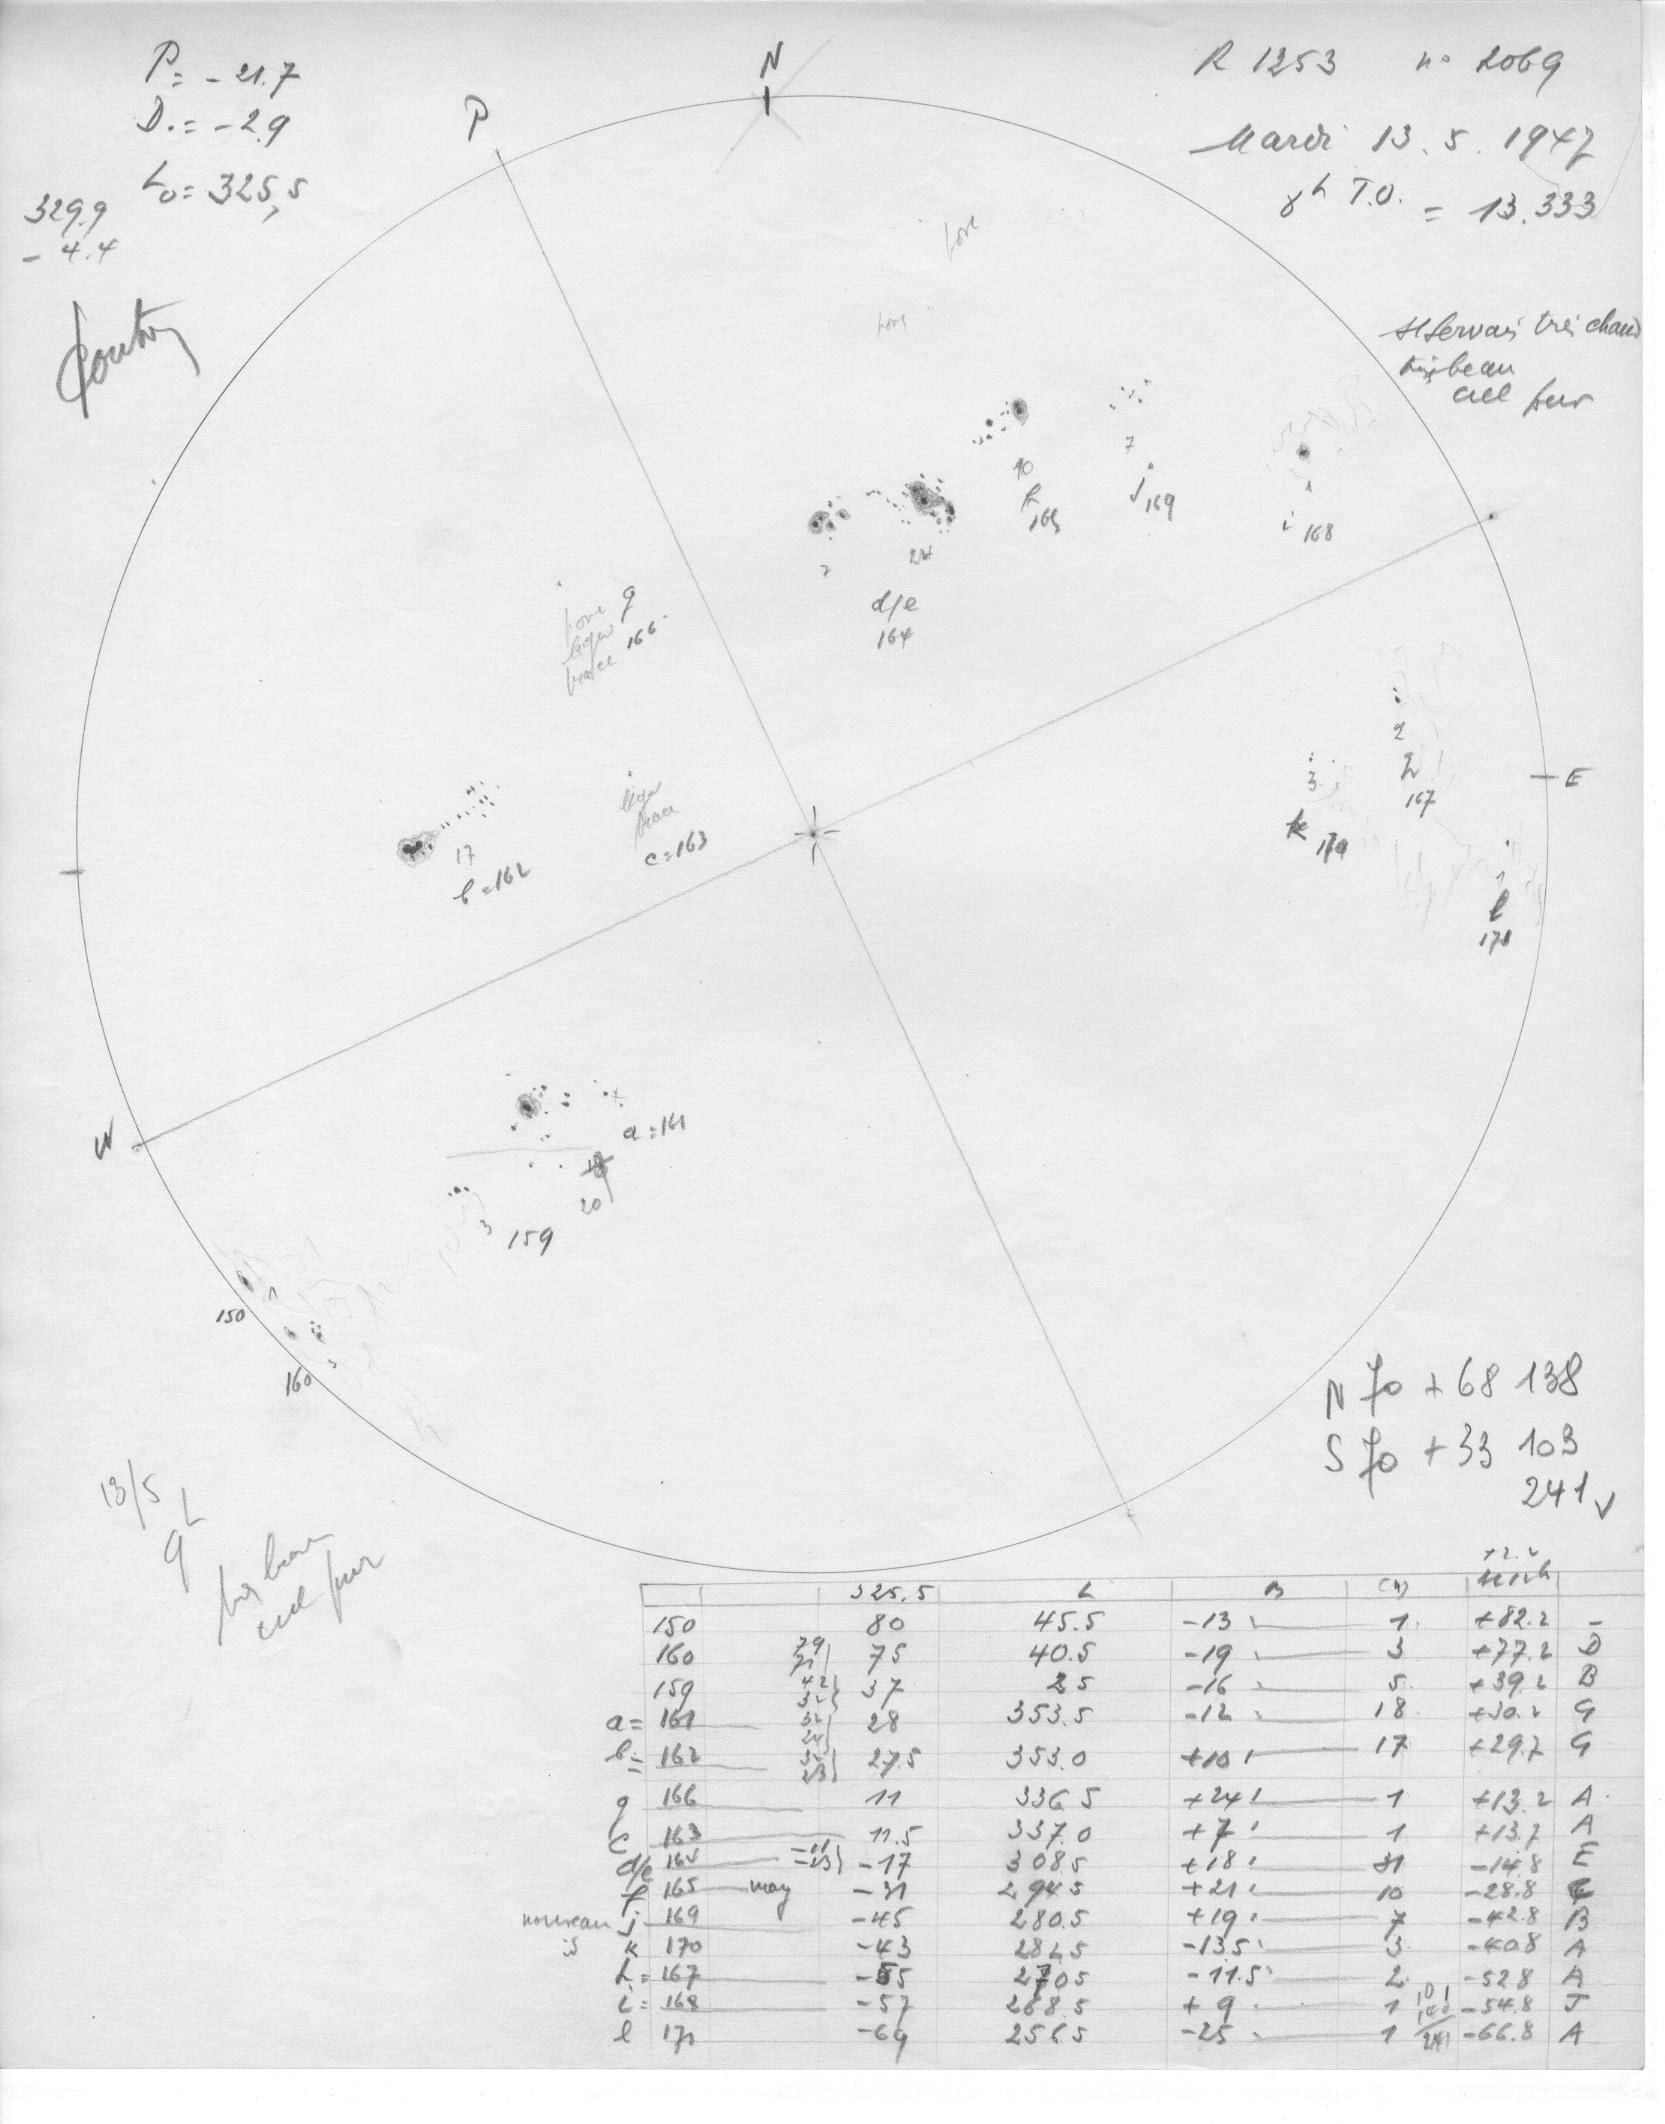 P = -21.7
D. = -2.9
Lo = 325,5
329.9
- 4.4
N
P
R 1253 no 2069
Mardi 13. 5. 1947
8h T.O. = 13.333
St Servais très chaud
très beau
ciel pur
pore
10
165
7
j 169
1
i 168
7
24
d/e
164
pore
g
166
2
h
167
E
3
k 170
17
b = 162
c = 163
1
l
171
W
a = 161
20
3
159
150
1
160
N 70 + 68 138
S 70 + 33 103
241
13/5
9h
très beau
ciel pur
325.5 L B
150 80 45.5 -13 1 +82.2 -
160 79 71 75 40.5 -19 3 +77.2 D
159 37 2.5 -16 5 +39.2 B
a = 161 28 353.5 -12 18 +30.2 G
b = 162 27.5 353.0 +10 17 +29.7 G
g 166 11 336.5 +24 1 +13.2 A
c 163 11.5 337.0 +7 1 +13.7 A
d/e 164 -17 308.5 +18 31 -14.8 E
f 165 -31 294.5 +21 10 -28.8
nouveau j 169 -45 280.5 +19 7 -42.8 B
k 170 -43 282.5 -13.5 3 -40.8 A
h = 167 -55 270.5 -11.5 2 -52.8 A
i = 168 -57 268.5 +9 1 -54.8 J
l 171 -69 256.5 -25 1 -66.8 A